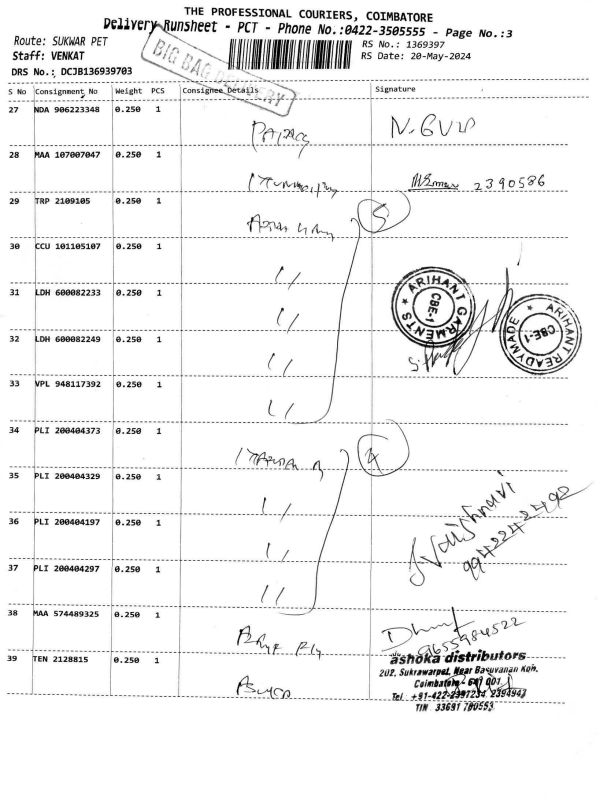 THE PROFESSIONAL COURIERS, COIMBATORE
Delivery Runsheet - PCT - Phone No.:0422-3505555 - Page No.:3
Route: SUKWAR PET
Staff: VENKAT
DRS No.: DCJB136939703
BIG BAG DELIVERY
RS No.: 1369397
RS Date: 20-May-2024
S No Consignment No Weight PCS Consignee Details Signature
27 NDA 906223348 0.250 1
28 MAA 107007047 0.250 1
2390586
29 TRP 2109105 0.250 1 5
30 CCU 101105107 0.250 1 "
31 LDH 600082233 0.250 1 "
32 LDH 600082249 0.250 1 "
33 VPL 948117392 0.250 1 "
ARIHANT GARMENTS ★ CBE-1 ★
ARIHANT READYMADE ★ CBE-1
34 PLI 200404373 0.250 1 4
35 PLI 200404329 0.250 1 "
36 PLI 200404197 0.250 1 "
37 PLI 200404297 0.250 1 "
Vaishnavi
9942242492
38 MAA 574489325 0.250 1
9655984522
39 TEN 2128815 0.250 1
ashoka distributors
202, Sukrawarpet, Near Basuvanan Koh,
Coimbatore - 641 001
Tel : +91-422-2397234 2394947
TIN 33691 780553